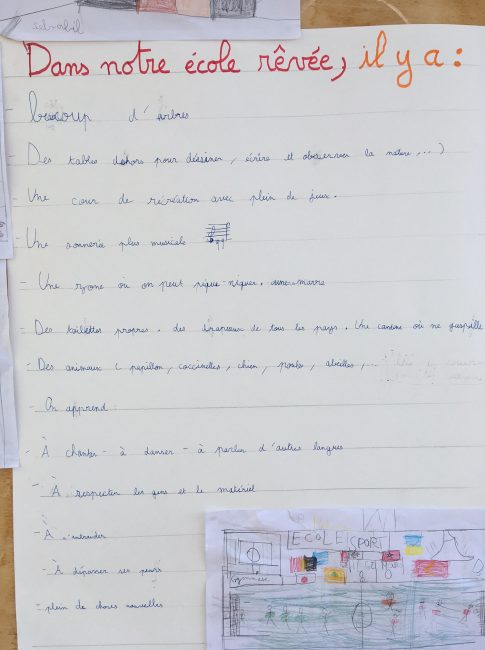 Dans notre école rêvée, il y a :
- beaucoup d'arbres
- Des tables dehors pour déssiner, écrire et observer la nature,...)
- Une cour de récréation avec plein de jeux.
- Une sonnerie plus musicale
- Une zone où on peut pique-niquer.
- Des toilettes propres. des drapeaux de tous les pays. Une cantine où ne gaspille
- Des animaux ( papillon, coccinelles, chien, poules, abeilles,...
- On apprend :
- À chanter - à danser - à parler d'autres langues
- À respecter les gens et le matériel
- À s'entraider
- À dépasser ses peurs
- plein de choses nouvelles
ECOLE SPORT
Gymnase